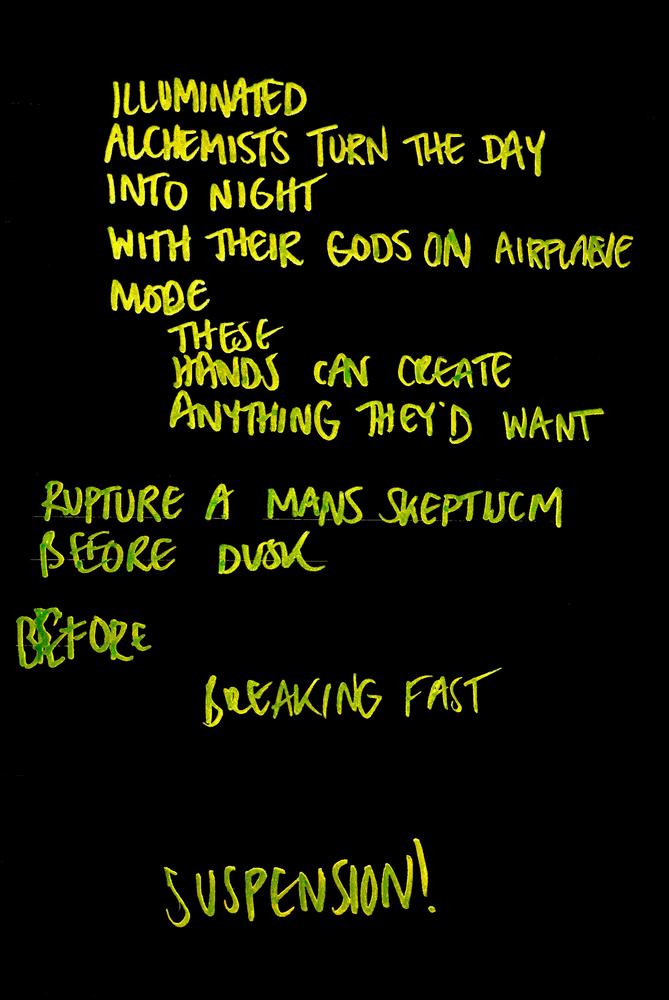 ILLUMINATED
ALCHEMISTS TURN THE DAY
INTO NIGHT
WITH THEIR GODS ON AIRPLANE
MODE
THESE
HANDS CAN CREATE
ANYTHING THEY'D WANT
RUPTURE A MANS SKEPTISCM
BEFORE DUSK
BEFORE
BREAKING FAST
SUSPENSION!